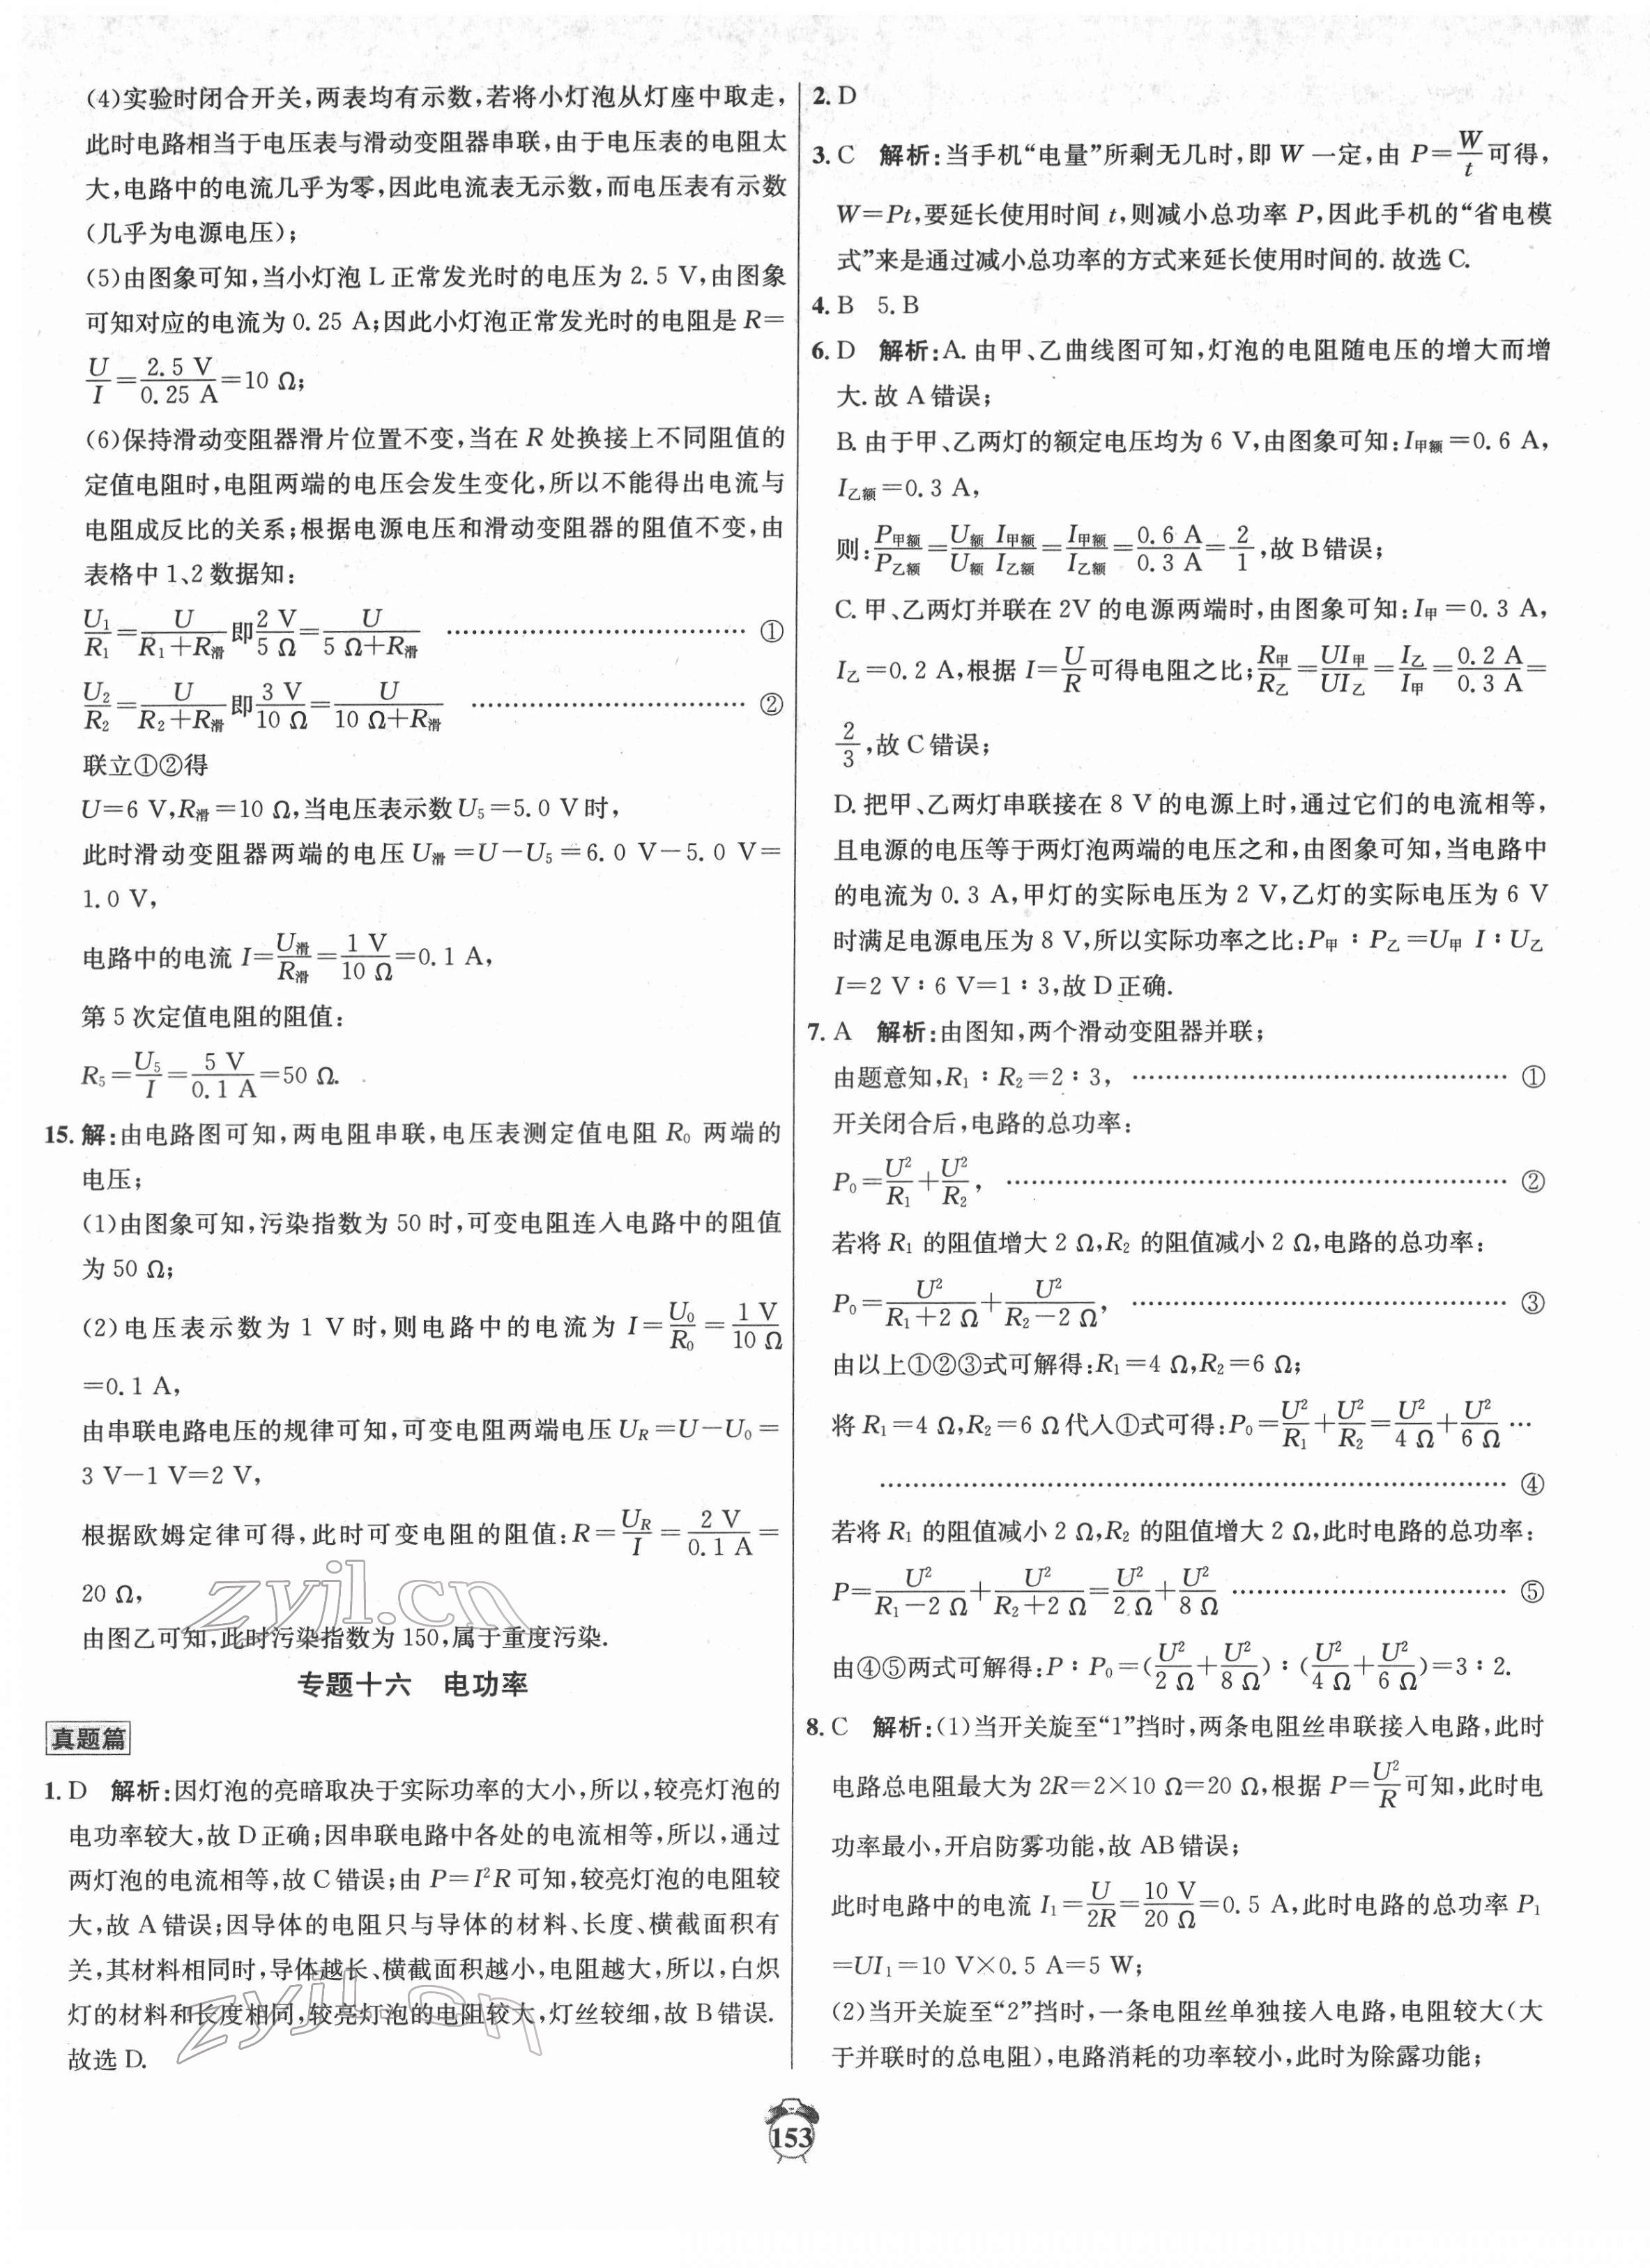 (4)实验时闭合开关,两表均有示数,若将小灯泡从灯座中取走,
此时电路相当于电压表与滑动变阻器串联,由于电压表的电阻太
大,电路中的电流几乎为零,因此电流表无示数,而电压表有示数
(几乎为电源电压);
(5)由图象可知,当小灯泡 L 正常发光时的电压为 2.5 V,由图象
可知对应的电流为 0.25 A;因此小灯泡正常发光时的电阻是 R=
U/I=2.5 V/0.25 A=10 Ω;
(6)保持滑动变阻器滑片位置不变,当在 R 处换接上不同阻值的
定值电阻时,电阻两端的电压会发生变化,所以不能得出电流与
电阻成反比的关系;根据电源电压和滑动变阻器的阻值不变,由
表格中 1、2 数据知:
U₁/R₁=U/(R₁+R滑)即2 V/5 Ω=U/(5 Ω+R滑) …………………………… ①
U₂/R₂=U/(R₂+R滑)即3 V/10 Ω=U/(10 Ω+R滑) ………………………… ②
联立①②得
U=6 V,R滑=10 Ω,当电压表示数 U₅=5.0 V 时,
此时滑动变阻器两端的电压 U滑=U-U₅=6.0 V-5.0 V=
1.0 V,
电路中的电流 I=U滑/R滑=1 V/10 Ω=0.1 A,
第 5 次定值电阻的阻值:
R₅=U₅/I=5 V/0.1 A=50 Ω.
15. 解:由电路图可知,两电阻串联,电压表测定值电阻 R₀ 两端的
电压;
(1)由图象可知,污染指数为 50 时,可变电阻连入电路中的阻值
为 50 Ω;
(2)电压表示数为 1 V 时,则电路中的电流为 I=U₀/R₀=1 V/10 Ω
=0.1 A,
由串联电路电压的规律可知,可变电阻两端电压 U_R=U-U₀=
3 V-1 V=2 V,
根据欧姆定律可得,此时可变电阻的阻值:R=U_R/I=2 V/0.1 A=
20 Ω,
由图乙可知,此时污染指数为 150,属于重度污染.
专题十六 电功率
真题篇
1. D 解析:因灯泡的亮暗取决于实际功率的大小,所以,较亮灯泡的
电功率较大,故 D 正确;因串联电路中各处的电流相等,所以,通过
两灯泡的电流相等,故 C 错误;由 P=I²R 可知,较亮灯泡的电阻较
大,故 A 错误;因导体的电阻只与导体的材料、长度、横截面积有
关,其材料相同时,导体越长、横截面积越小,电阻越大,所以,白炽
灯的材料和长度相同,较亮灯泡的电阻较大,灯丝较细,故 B 错误.
故选 D.
2. D
3. C 解析:当手机“电量”所剩无几时,即 W 一定,由 P=W/t可得,
W=Pt,要延长使用时间 t,则减小总功率 P,因此手机的“省电模
式”来是通过减小总功率的方式来延长使用时间的.故选 C.
4. B 5. B
6. D 解析:A. 由甲、乙曲线图可知,灯泡的电阻随电压的增大而增
大.故 A 错误;
B. 由于甲、乙两灯的额定电压均为 6 V,由图象可知:I甲额=0.6 A,
I乙额=0.3 A,
则:P甲额/P乙额=U额 I甲额/U额 I乙额=I甲额/I乙额=0.6 A/0.3 A=2/1,故 B 错误;
C. 甲、乙两灯并联在 2V 的电源两端时,由图象可知:I甲=0.3 A,
I乙=0.2 A,根据 I=U/R可得电阻之比;R甲/R乙=UI甲/UI乙=I乙/I甲=0.2 A/0.3 A=
2/3,故 C 错误;
D. 把甲、乙两灯串联接在 8 V 的电源上时,通过它们的电流相等,
且电源的电压等于两灯泡两端的电压之和,由图象可知,当电路中
的电流为 0.3 A,甲灯的实际电压为 2 V,乙灯的实际电压为 6 V
时满足电源电压为 8 V,所以实际功率之比:P甲∶P乙=U甲 I∶U乙
I=2 V∶6 V=1∶3,故 D 正确.
7. A 解析:由图知,两个滑动变阻器并联;
由题意知,R₁∶R₂=2∶3, …………………………………… ①
开关闭合后,电路的总功率:
P₀=U²/R₁+U²/R₂, ………………………………………………… ②
若将 R₁ 的阻值增大 2 Ω,R₂ 的阻值减小 2 Ω,电路的总功率:
P₀=U²/(R₁+2 Ω)+U²/(R₂-2 Ω), …………………………………… ③
由以上①②③式可解得:R₁=4 Ω,R₂=6 Ω;
将 R₁=4 Ω,R₂=6 Ω代入①式可得:P₀=U²/R₁+U²/R₂=U²/4 Ω+U²/6 Ω …
…………………………………………………………… ④
若将 R₁ 的阻值减小 2 Ω,R₂ 的阻值增大 2 Ω,此时电路的总功率:
P=U²/(R₁-2 Ω)+U²/(R₂+2 Ω)=U²/2 Ω+U²/8 Ω ………………………… ⑤
由④⑤两式可解得:P∶P₀=(U²/2 Ω+U²/8 Ω)∶(U²/4 Ω+U²/6 Ω)=3∶2.
8. C 解析:(1)当开关旋至“1”挡时,两条电阻丝串联接入电路,此时
电路总电阻最大为 2R=2×10 Ω=20 Ω,根据 P=U²/R可知,此时电
功率最小,开启防雾功能,故 AB 错误;
此时电路中的电流 I₁=U/2R=10 V/20 Ω=0.5 A,此时电路的总功率 P₁
=UI₁=10 V×0.5 A=5 W;
(2)当开关旋至“2”挡时,一条电阻丝单独接入电路,电阻较大(大
于并联时的总电阻),电路消耗的功率较小,此时为除露功能;
153
zyjl.cn
zyjl.cn